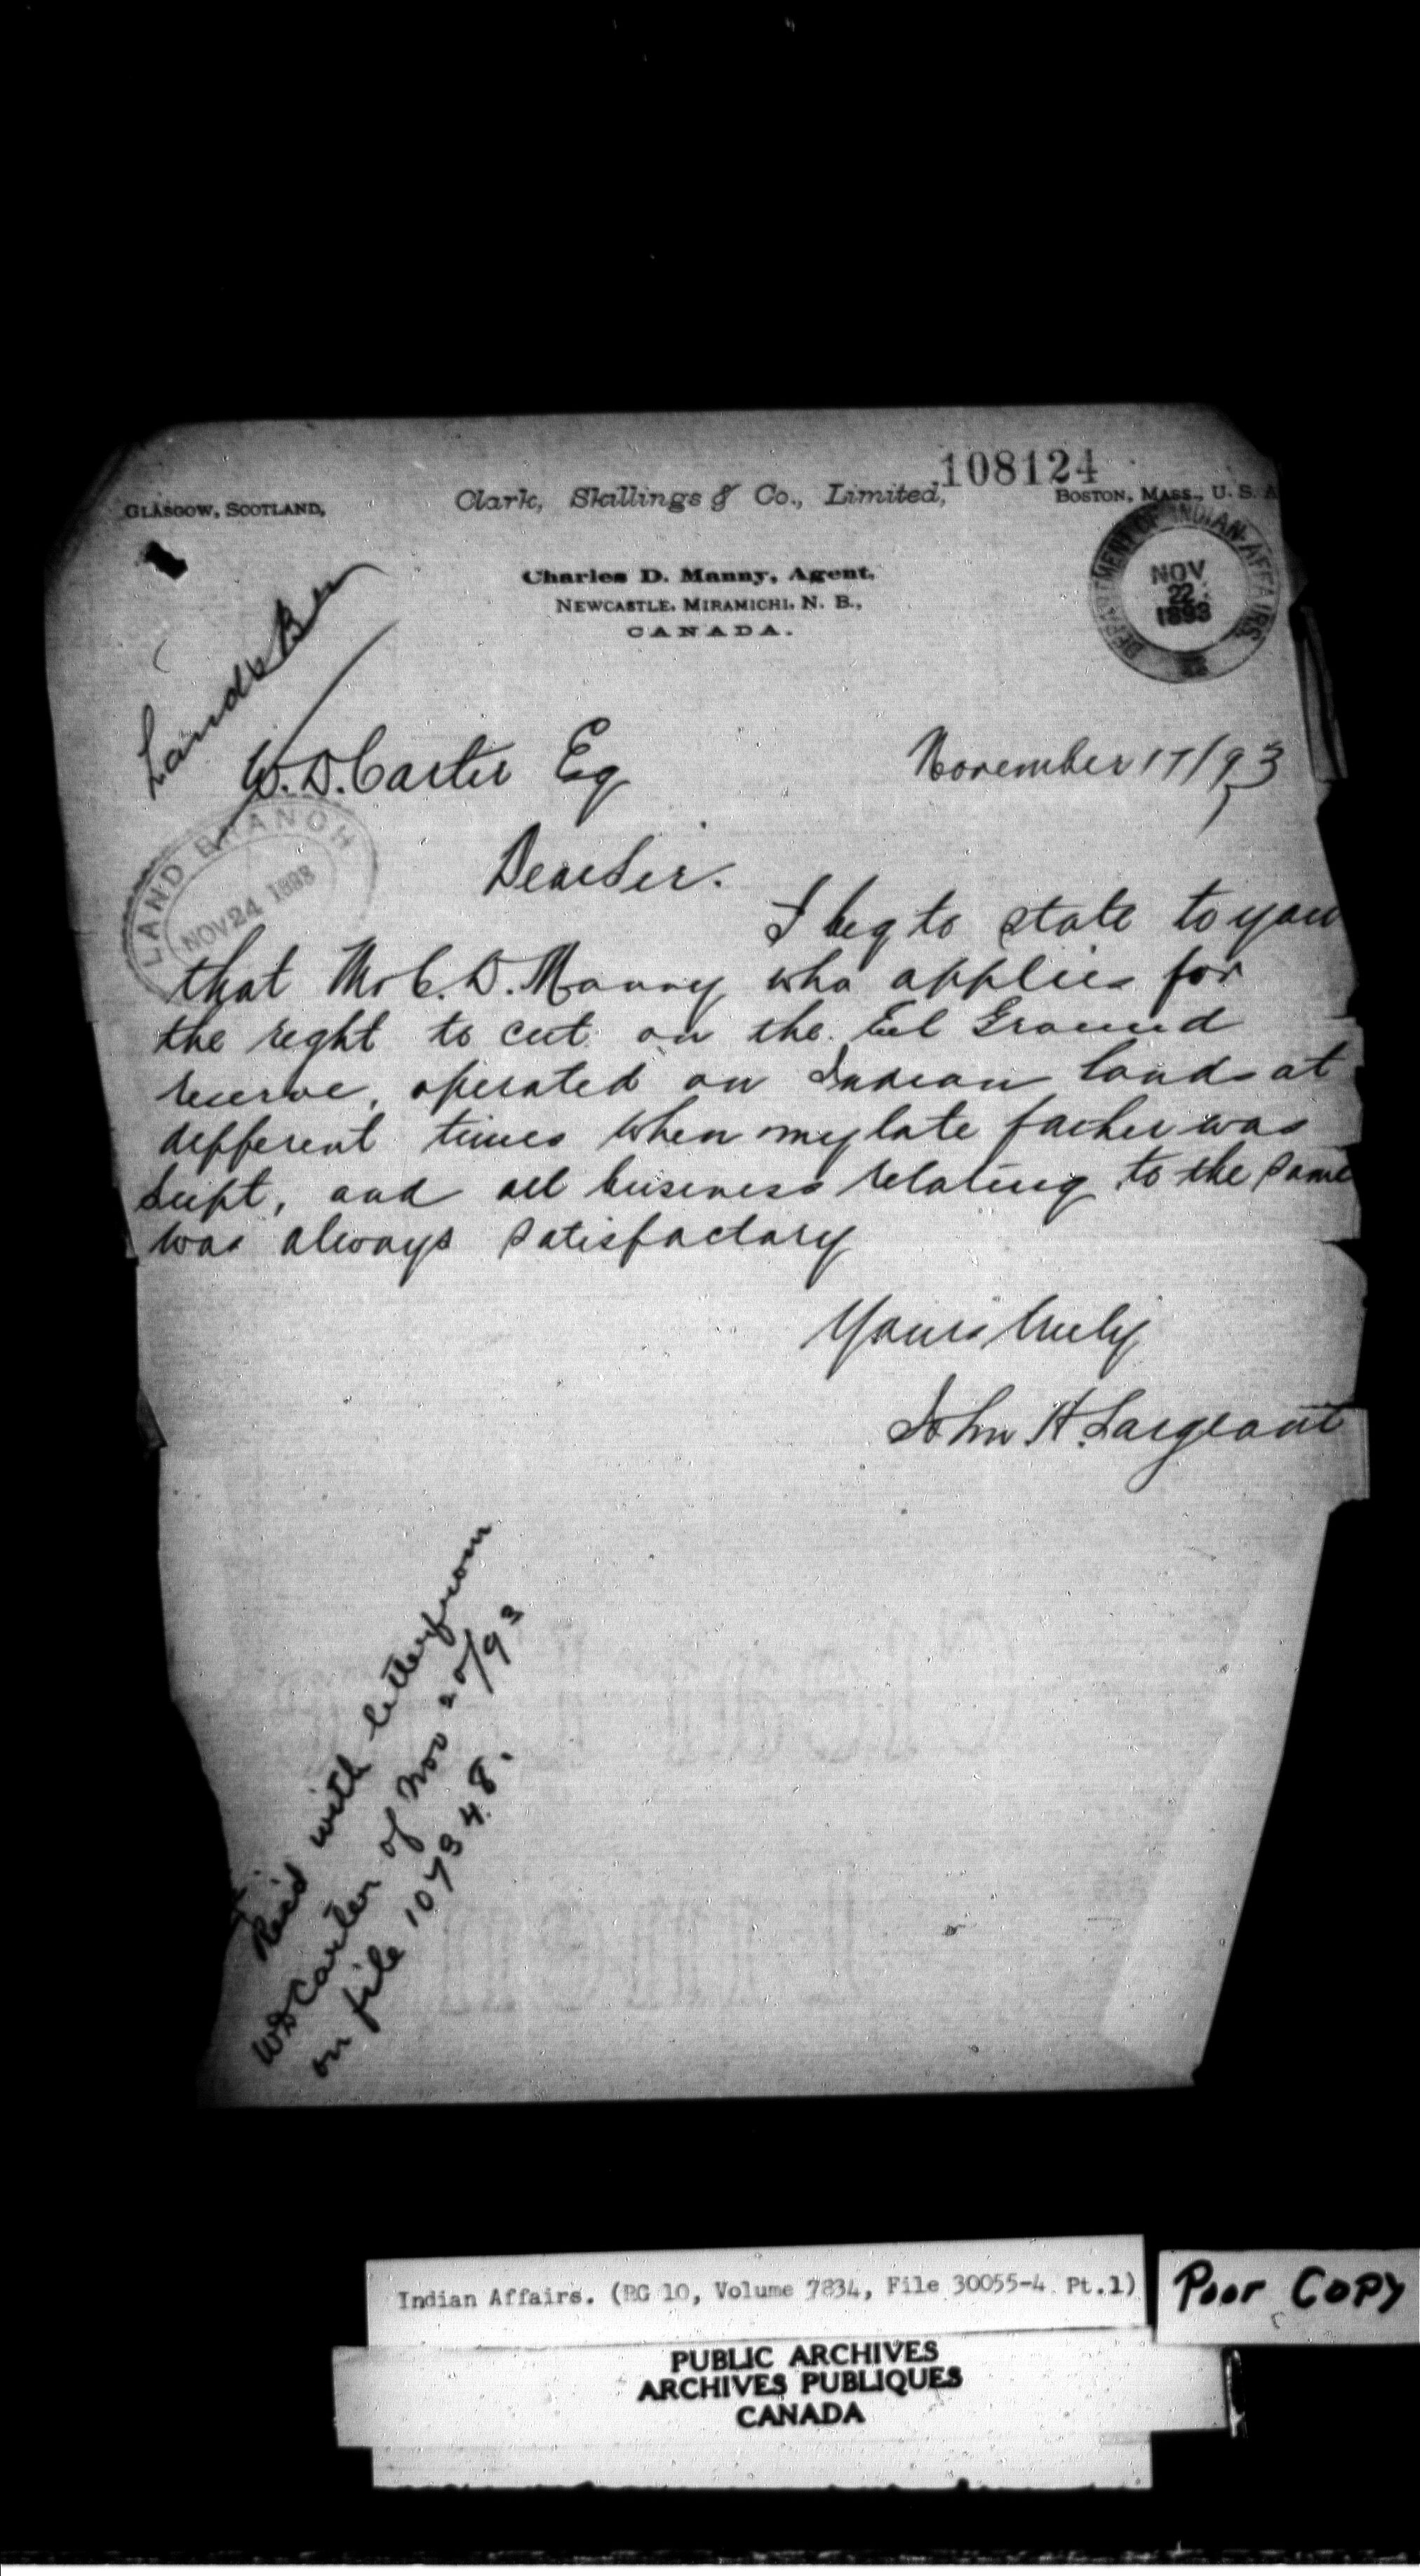 108124
Glasgow, Scotland,
Clark, Skillings & Co., Limited,
Boston, Mass., U. S. A
Charles D. Manny, Agent,
Newcastle, Miramichi, N. B.,
CANADA.
DEPARTMENT OF INDIAN AFFAIRS
NOV
22
1893
Lands Bn
W. D. Carter Eq
November 17/93
LAND BRANCH
NOV 24 1893
Dear Sir.
I beg to state to you
that Mr C. D. Manny who applies for
the right to cut on the Eel Ground
reserve, operated on Indian lands at
different times when my late father was
Supt, and all business relating to the same
was always satisfactory
Yours truly
John H. Sargeant
Rec'd with letter from
WD Carter of Nov 20/93
on file 107348.
Indian Affairs. (RG 10, Volume 7834, File 30055-4 Pt.1)
Poor Copy
PUBLIC ARCHIVES
ARCHIVES PUBLIQUES
CANADA